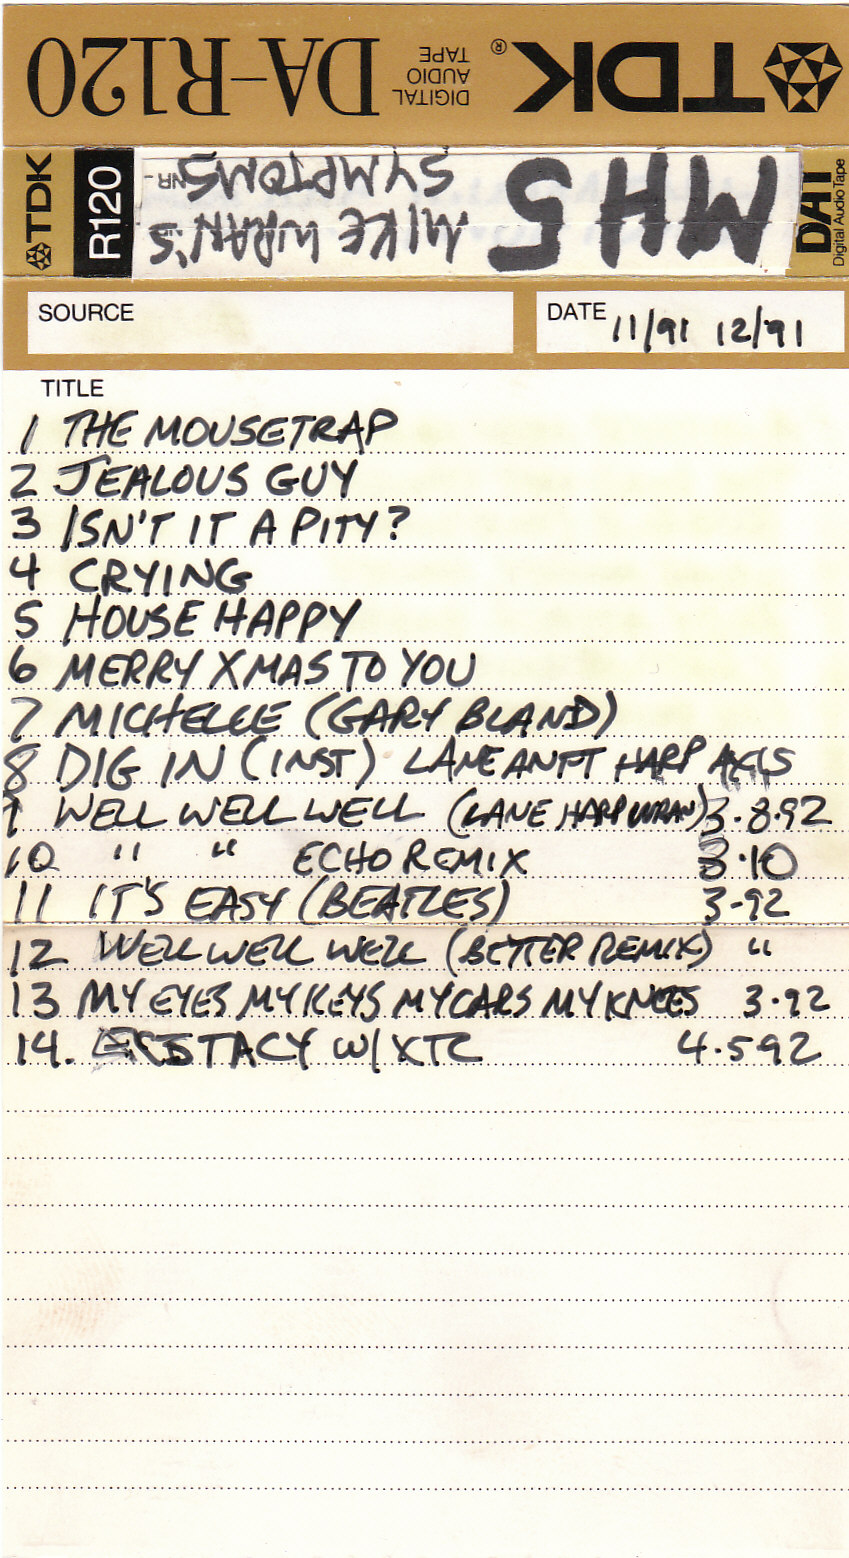 TDK® DIGITAL AUDIO TAPE DA-R120
TDK
R120
MH5
MIKE WRAN'S
SYMPTOMS
NR-
DAT
Digital Audio Tape
SOURCE
DATE 11/91 12/91
TITLE
1 THE MOUSETRAP
2 JEALOUS GUY
3 ISN'T IT A PITY?
4 CRYING
5 HOUSE HAPPY
6 MERRY XMAS TO YOU
7 MICHELLE (GARY BLAND)
8 DIG IN (INST) LANE HARP AXIS
9 WELL WELL WELL (LANE HARP WRAN) 3.8.92
10 " " ECHO REMIX 3.10
11 IT'S EASY (BEATLES) 3-92
12 WELL WELL WELL (BETTER REMIX) "
13 MY EYES MY KEYS MY CARS MY KNEES 3.92
14. ECSTACY W/ XTC 4.592